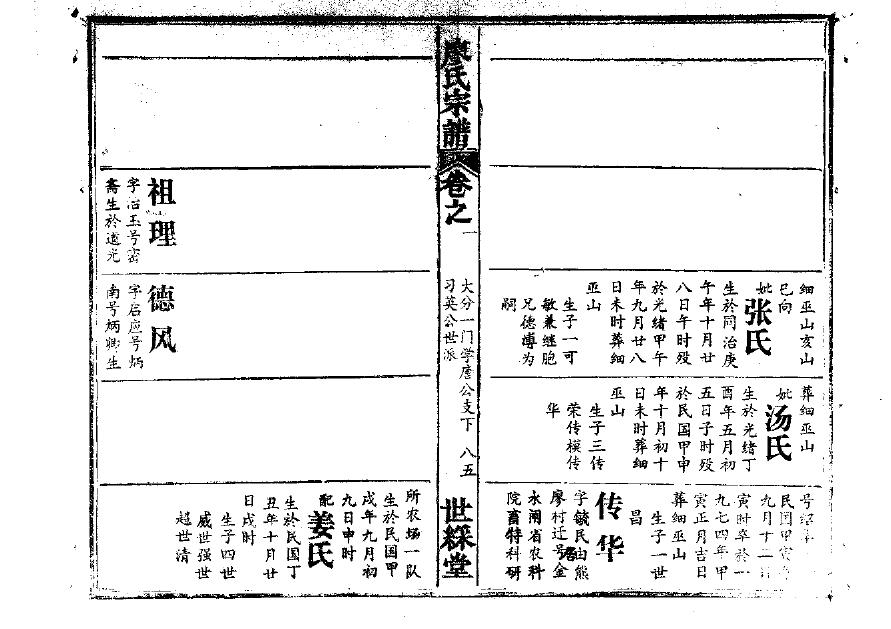 细巫山亥山
已向
妣张氏
生於同治庚
午年十月廿
八日午时殁
於光绪甲午
年九月廿八
日未时葬细
巫山
生子一可
敏兼继胞
兄德溥为
嗣
葬细巫山
妣汤氏
生於光绪丁
酉年五月初
五日子时殁
於民国甲申
年十月初十
日未时葬细
巫山
生子三传
荣传模传
华
号绍
民国甲寅年
九月十二日
寅时卒於一
九七四年甲
寅正月吉日
葬细巫山
生子一世
昌
传华
字毓民由熊
廖村迁居金
水闸省农科
院畜特科研
廖氏宗谱
卷之一
大分一门学廑公支下 八五
习英公世派
世綵堂
祖理
字治玉号峦
斋生於道光
德风
字启应号炳
南号炳卿生
所农场一队
生於民国甲
戌年九月初
九日申时
配姜氏
生於民国丁
丑年十月廿
日戌时
生子四世
威世强世
超世清